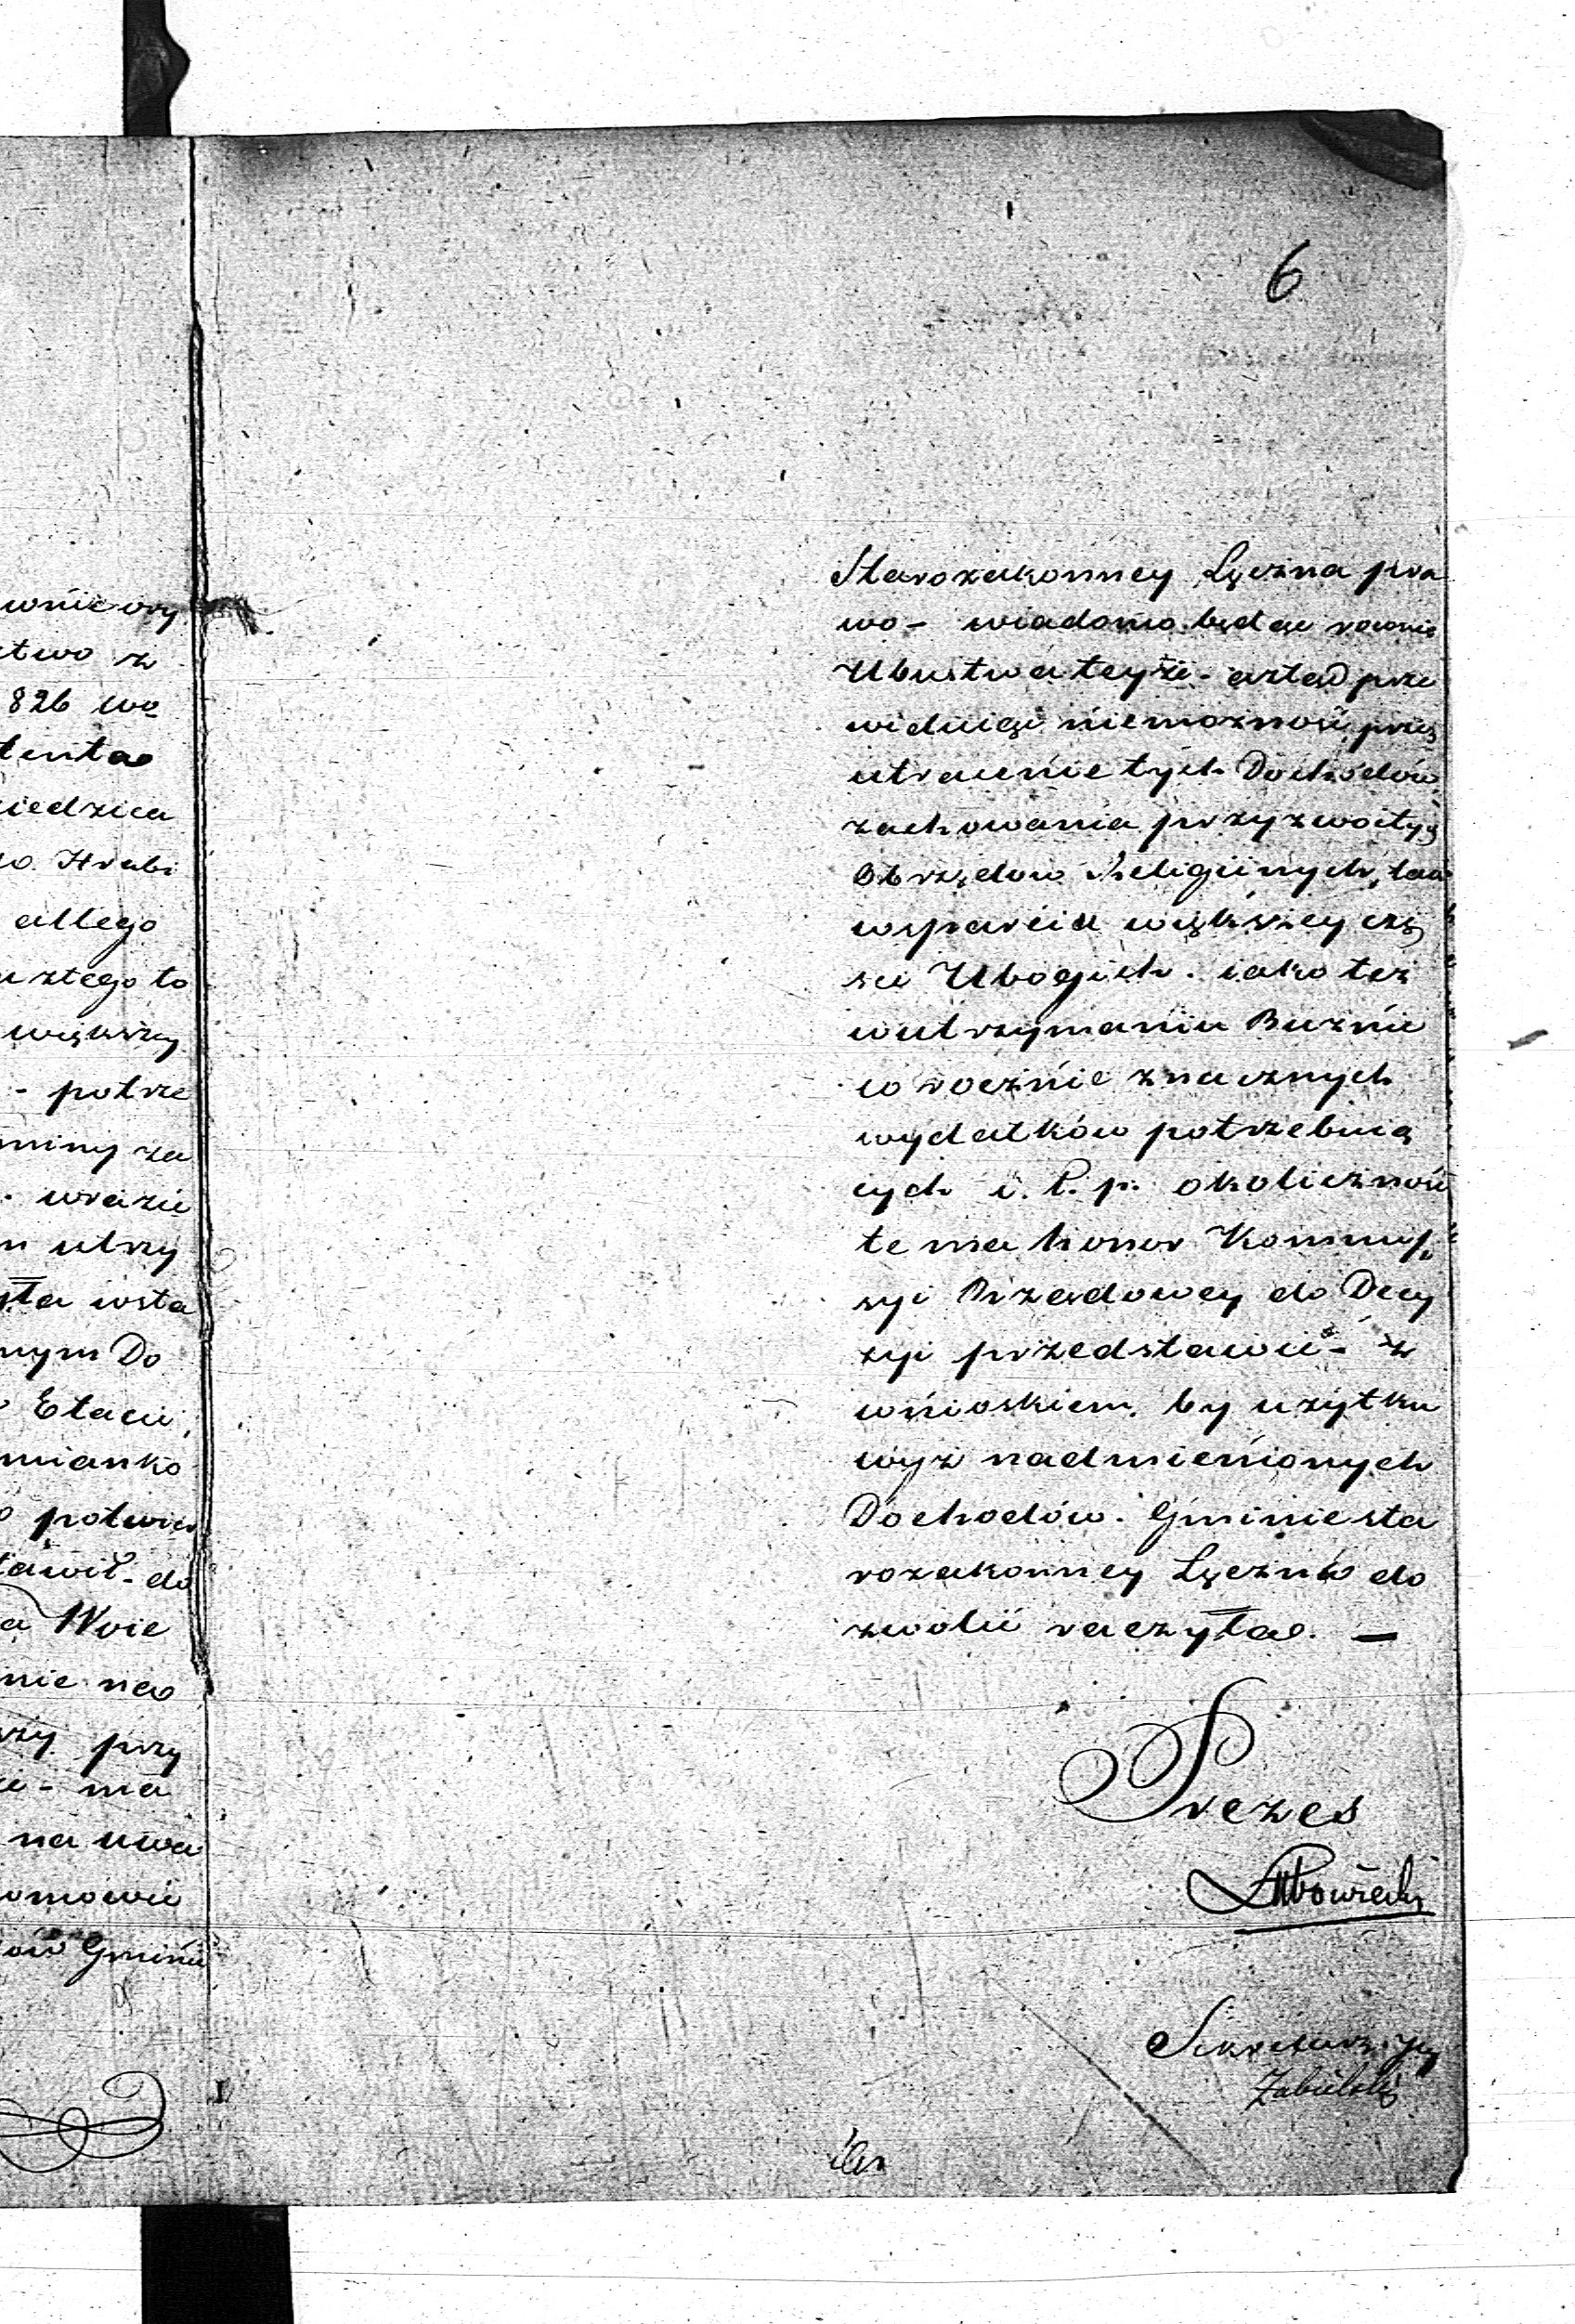 wnie ory
stwo z
826 wo
tenta
iedzica
o Hrabi
allego
u ztego to
większy
- potrze
miny za
wrazie
m utrzy
yła wsta
nym Do
Etacie
mianko
potwier
tawił - do
a Woie
nie na
rzy przy
ie - ma
na uwa
omowie
ow Gminie
6
Starozakonney Łęczna pra
wo - wiadomo będąc rownie
Ubustwa teyże - aztąd prze
widuiąc niemożność, przez
utracenie tych Dochodów,
zachowania przyzwoitych
Obrzędow Religiinych, tak
wsparcia większey czę
sci Ubogich. iako też
w utrzymaniu Buznic
w rocznie znacznych
wydatków potrzebuią
cych i. t. p. okoliczność
te ma honor Kommis„
syi Rządowey do Decy
zyi przedstawić - z
wnioskiem, by użytku
wyż nadmienionych
Dochodów. Gminie sta
rozakonney Łęczna do
zwolić raczyła. —
Prezes
Sekretarz Jny
Zabielski